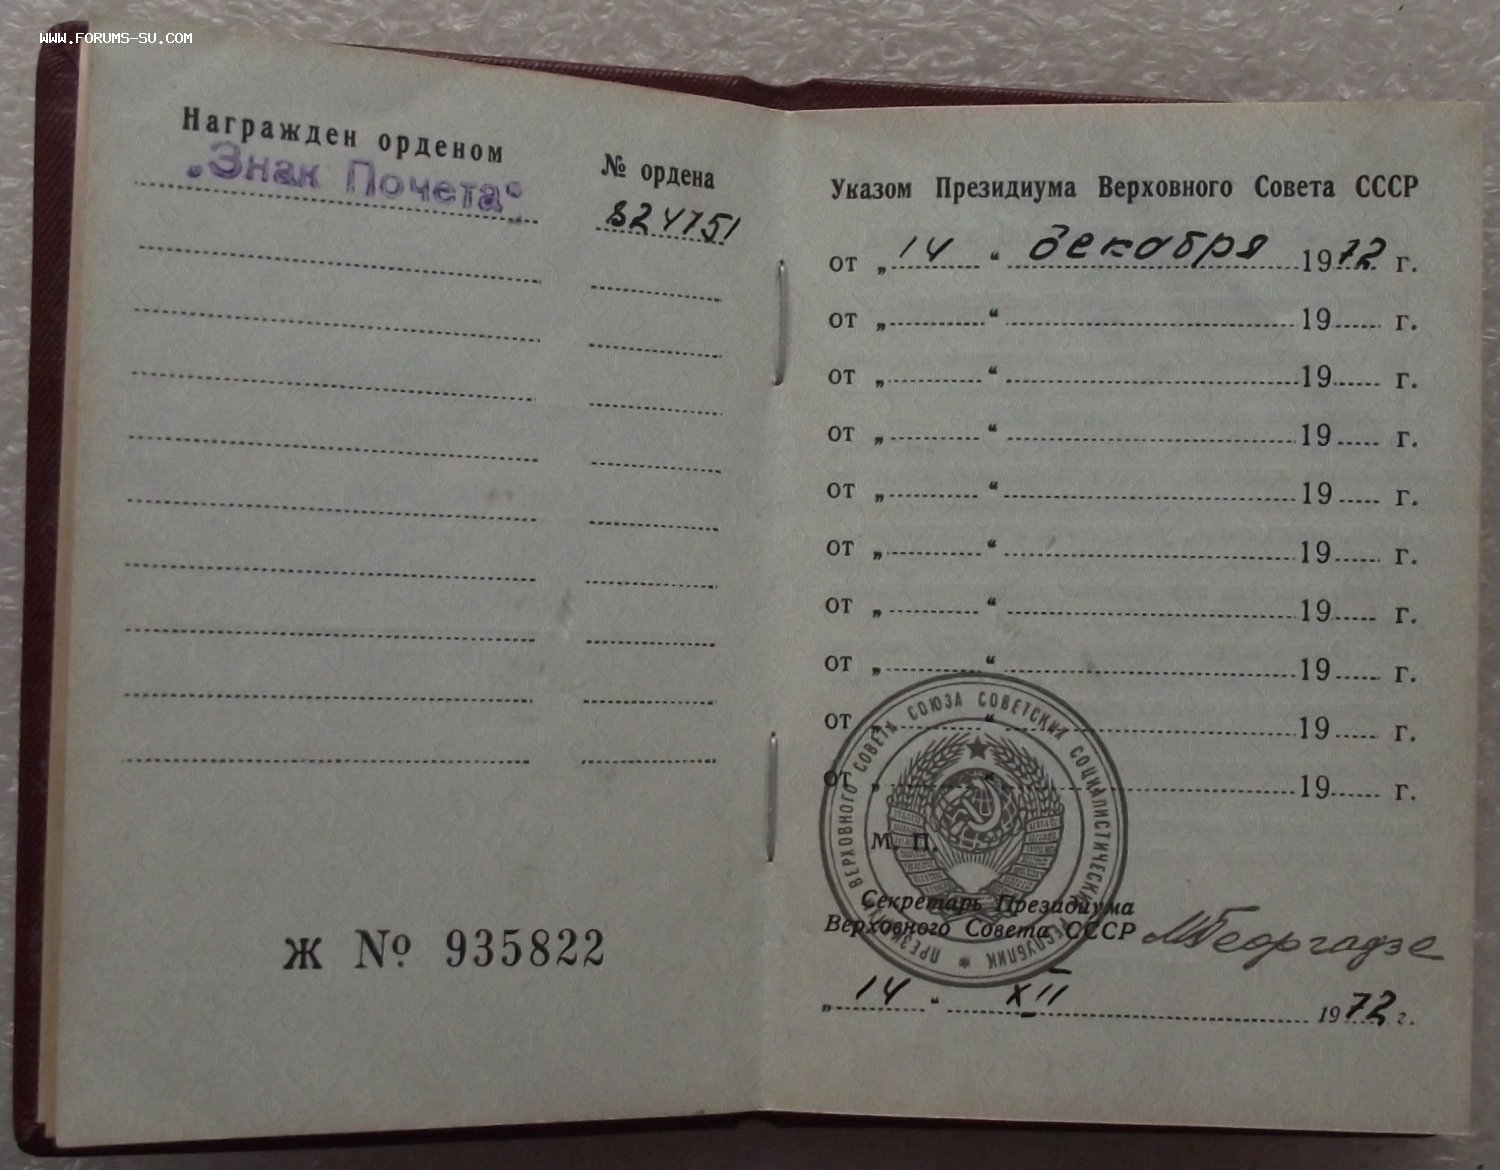 WWW.FORUMS-SU.COM
Награжден орденом
„Знак Почета“
№ ордена
824751
Ж № 935822
Указом Президиума Верховного Совета СССР
от „ 14 “ декабря 1972 г.
от „ “ 19 г.
от „ “ 19 г.
от „ “ 19 г.
от „ “ 19 г.
от „ “ 19 г.
от „ “ 19 г.
от „ “ 19 г.
от „ “ 19 г.
от „ “ 19 г.
ПРЕЗИДИУМ ВЕРХОВНОГО СОВЕТА СОЮЗА СОВЕТСКИХ СОЦИАЛИСТИЧЕСКИХ РЕСПУБЛИК
М. П.
Секретарь Президиума
Верховного Совета СССР МГеоргадзе
„ 14 “ XII 1972 г.